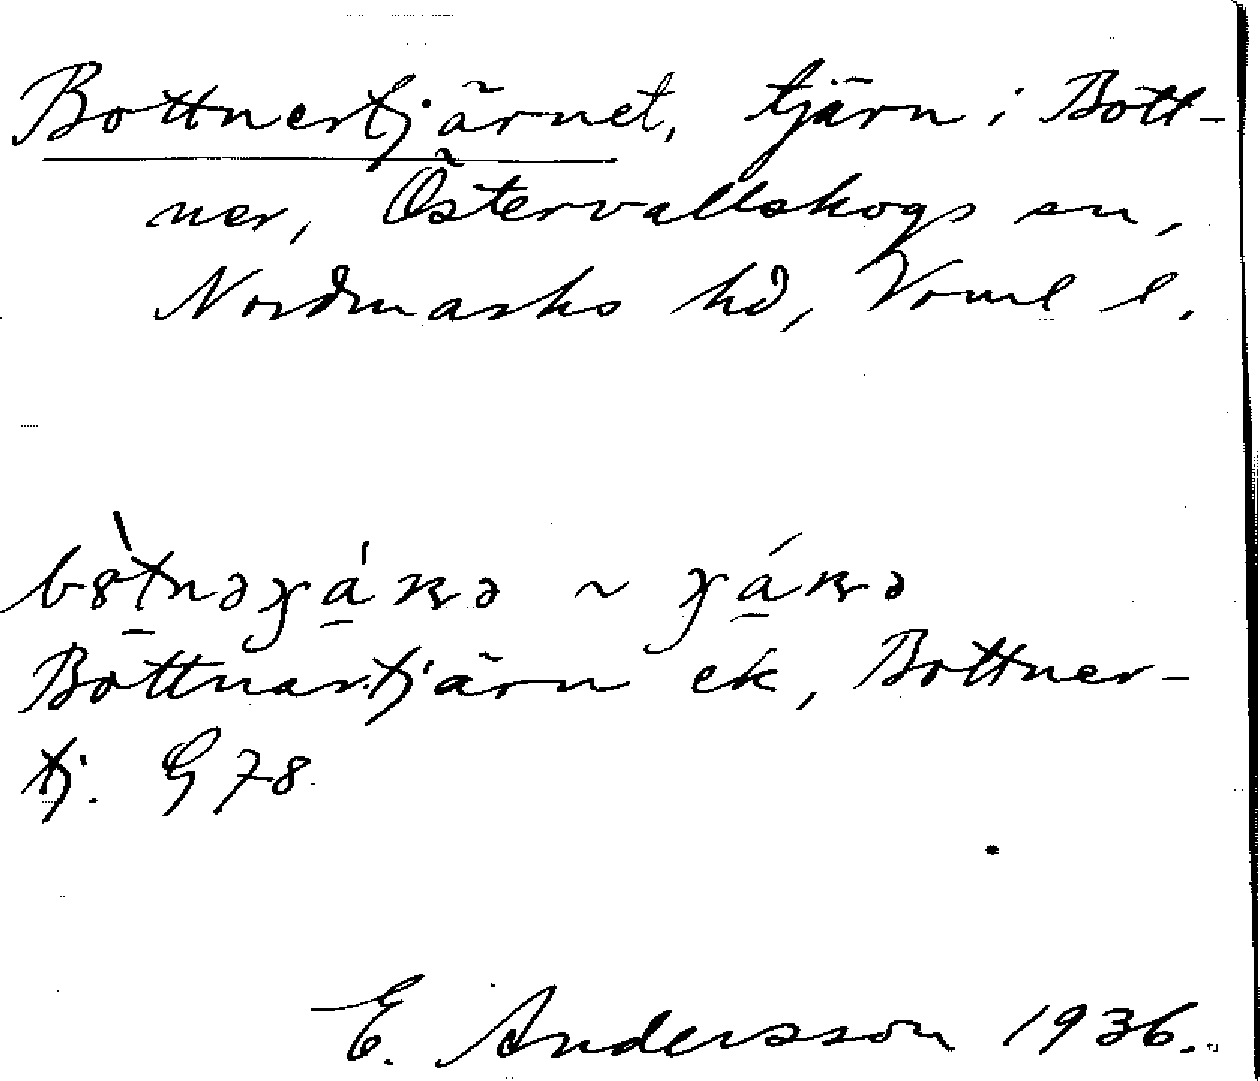 Bottnertjärnet, tjärn i Bott-
ner, Östervallskogs sn,
Nordmarks hd, Vrml l.
~
Bottnartjärn ek, Bottner-
tj. G 78.
E. Andersson 1936.